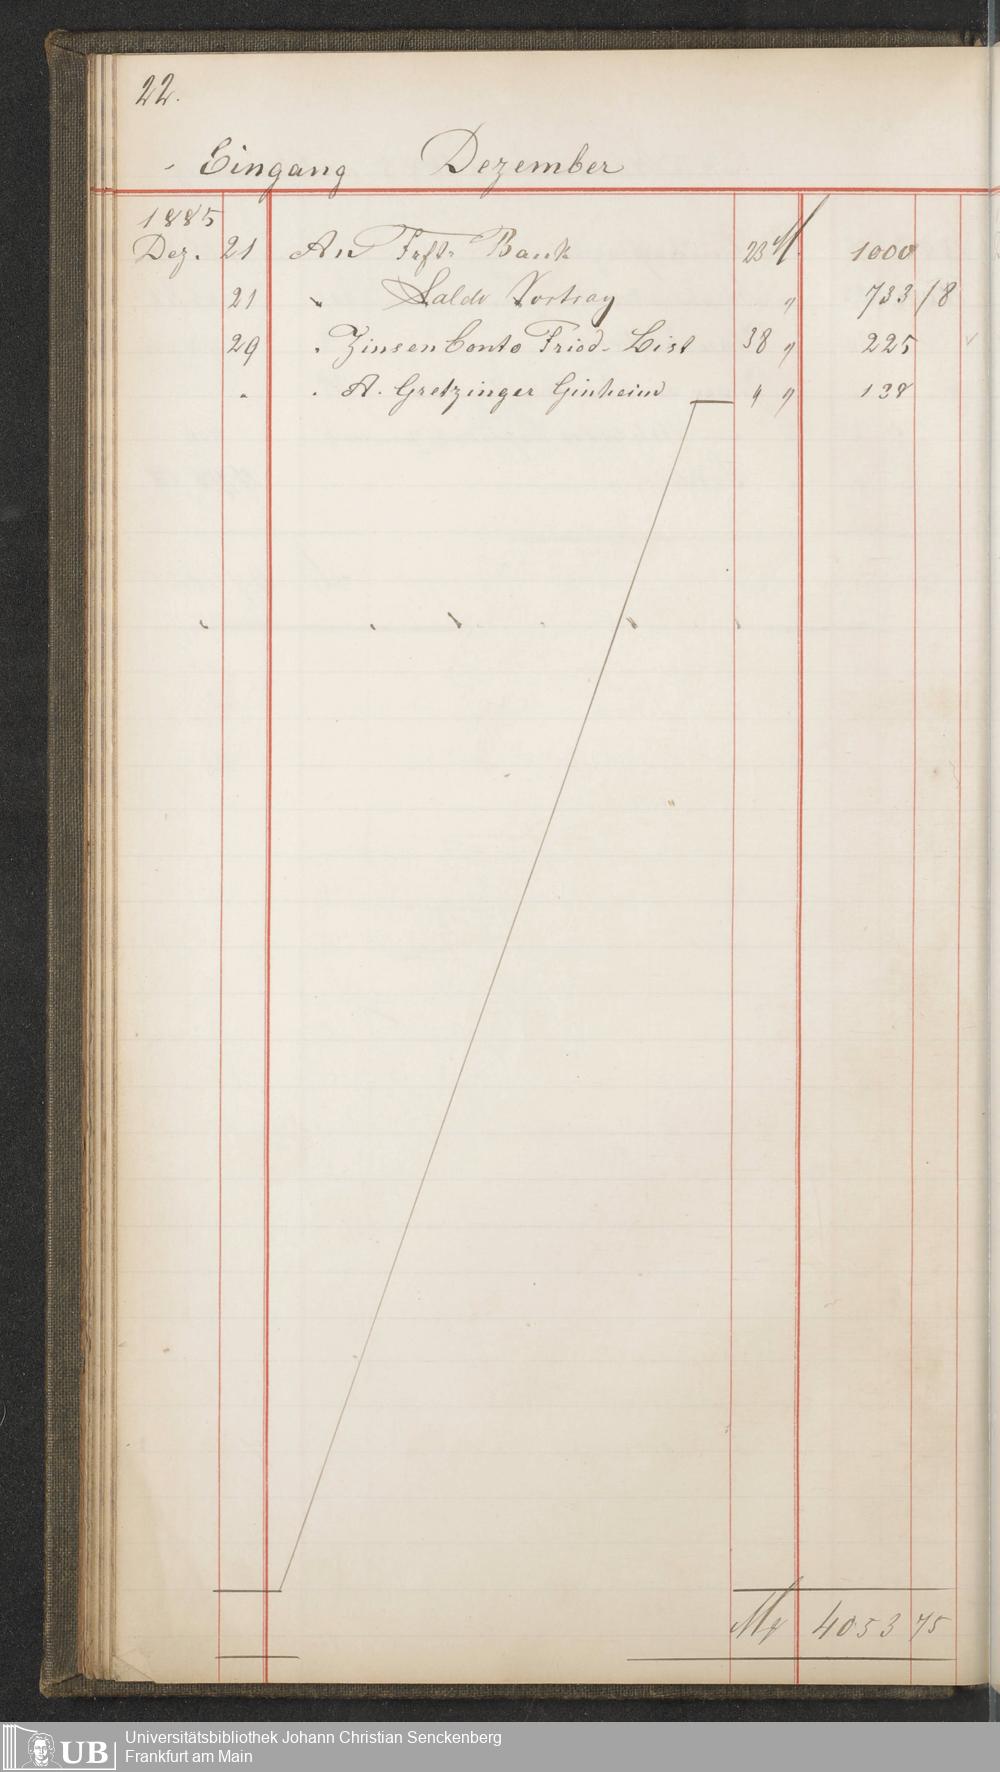 22.
Eingang Dezember
1885
Dez. 21 An Frft. Bank 23 M 1000
21 " Saldo Vortrag " 733 18
29 " Zinsen Conto Fried. List 38 " 225
" " A. Gretzinger Ginheim 4 " 138
Mk 4053 75
UB
Universitätsbibliothek Johann Christian Senckenberg
Frankfurt am Main